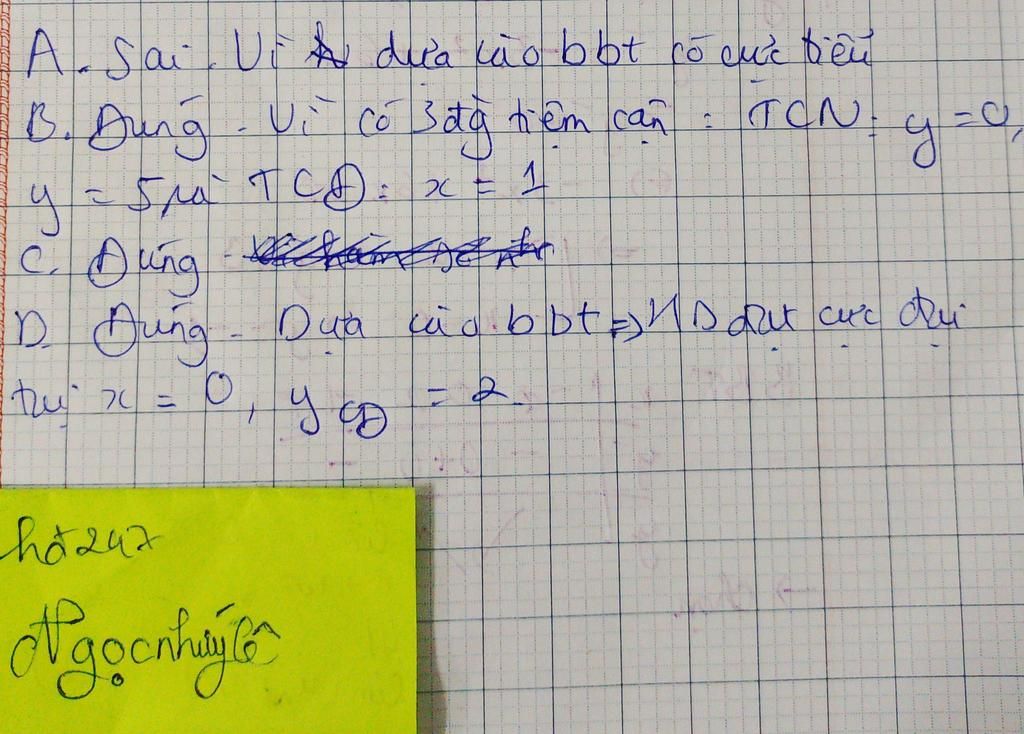 A. Sai. Vì dựa vào bbt có cực tiểu
B. Đúng - Vì có 3 đg tiệm cận : TCN: y = 0,
y = 5 và TCĐ: x = 1
C. Đúng -
D. Đúng - Dựa vào bbt => HS đạt cực đại
tại x = 0, y CĐ = 2.
hđ247
Ngọcnhuýlê